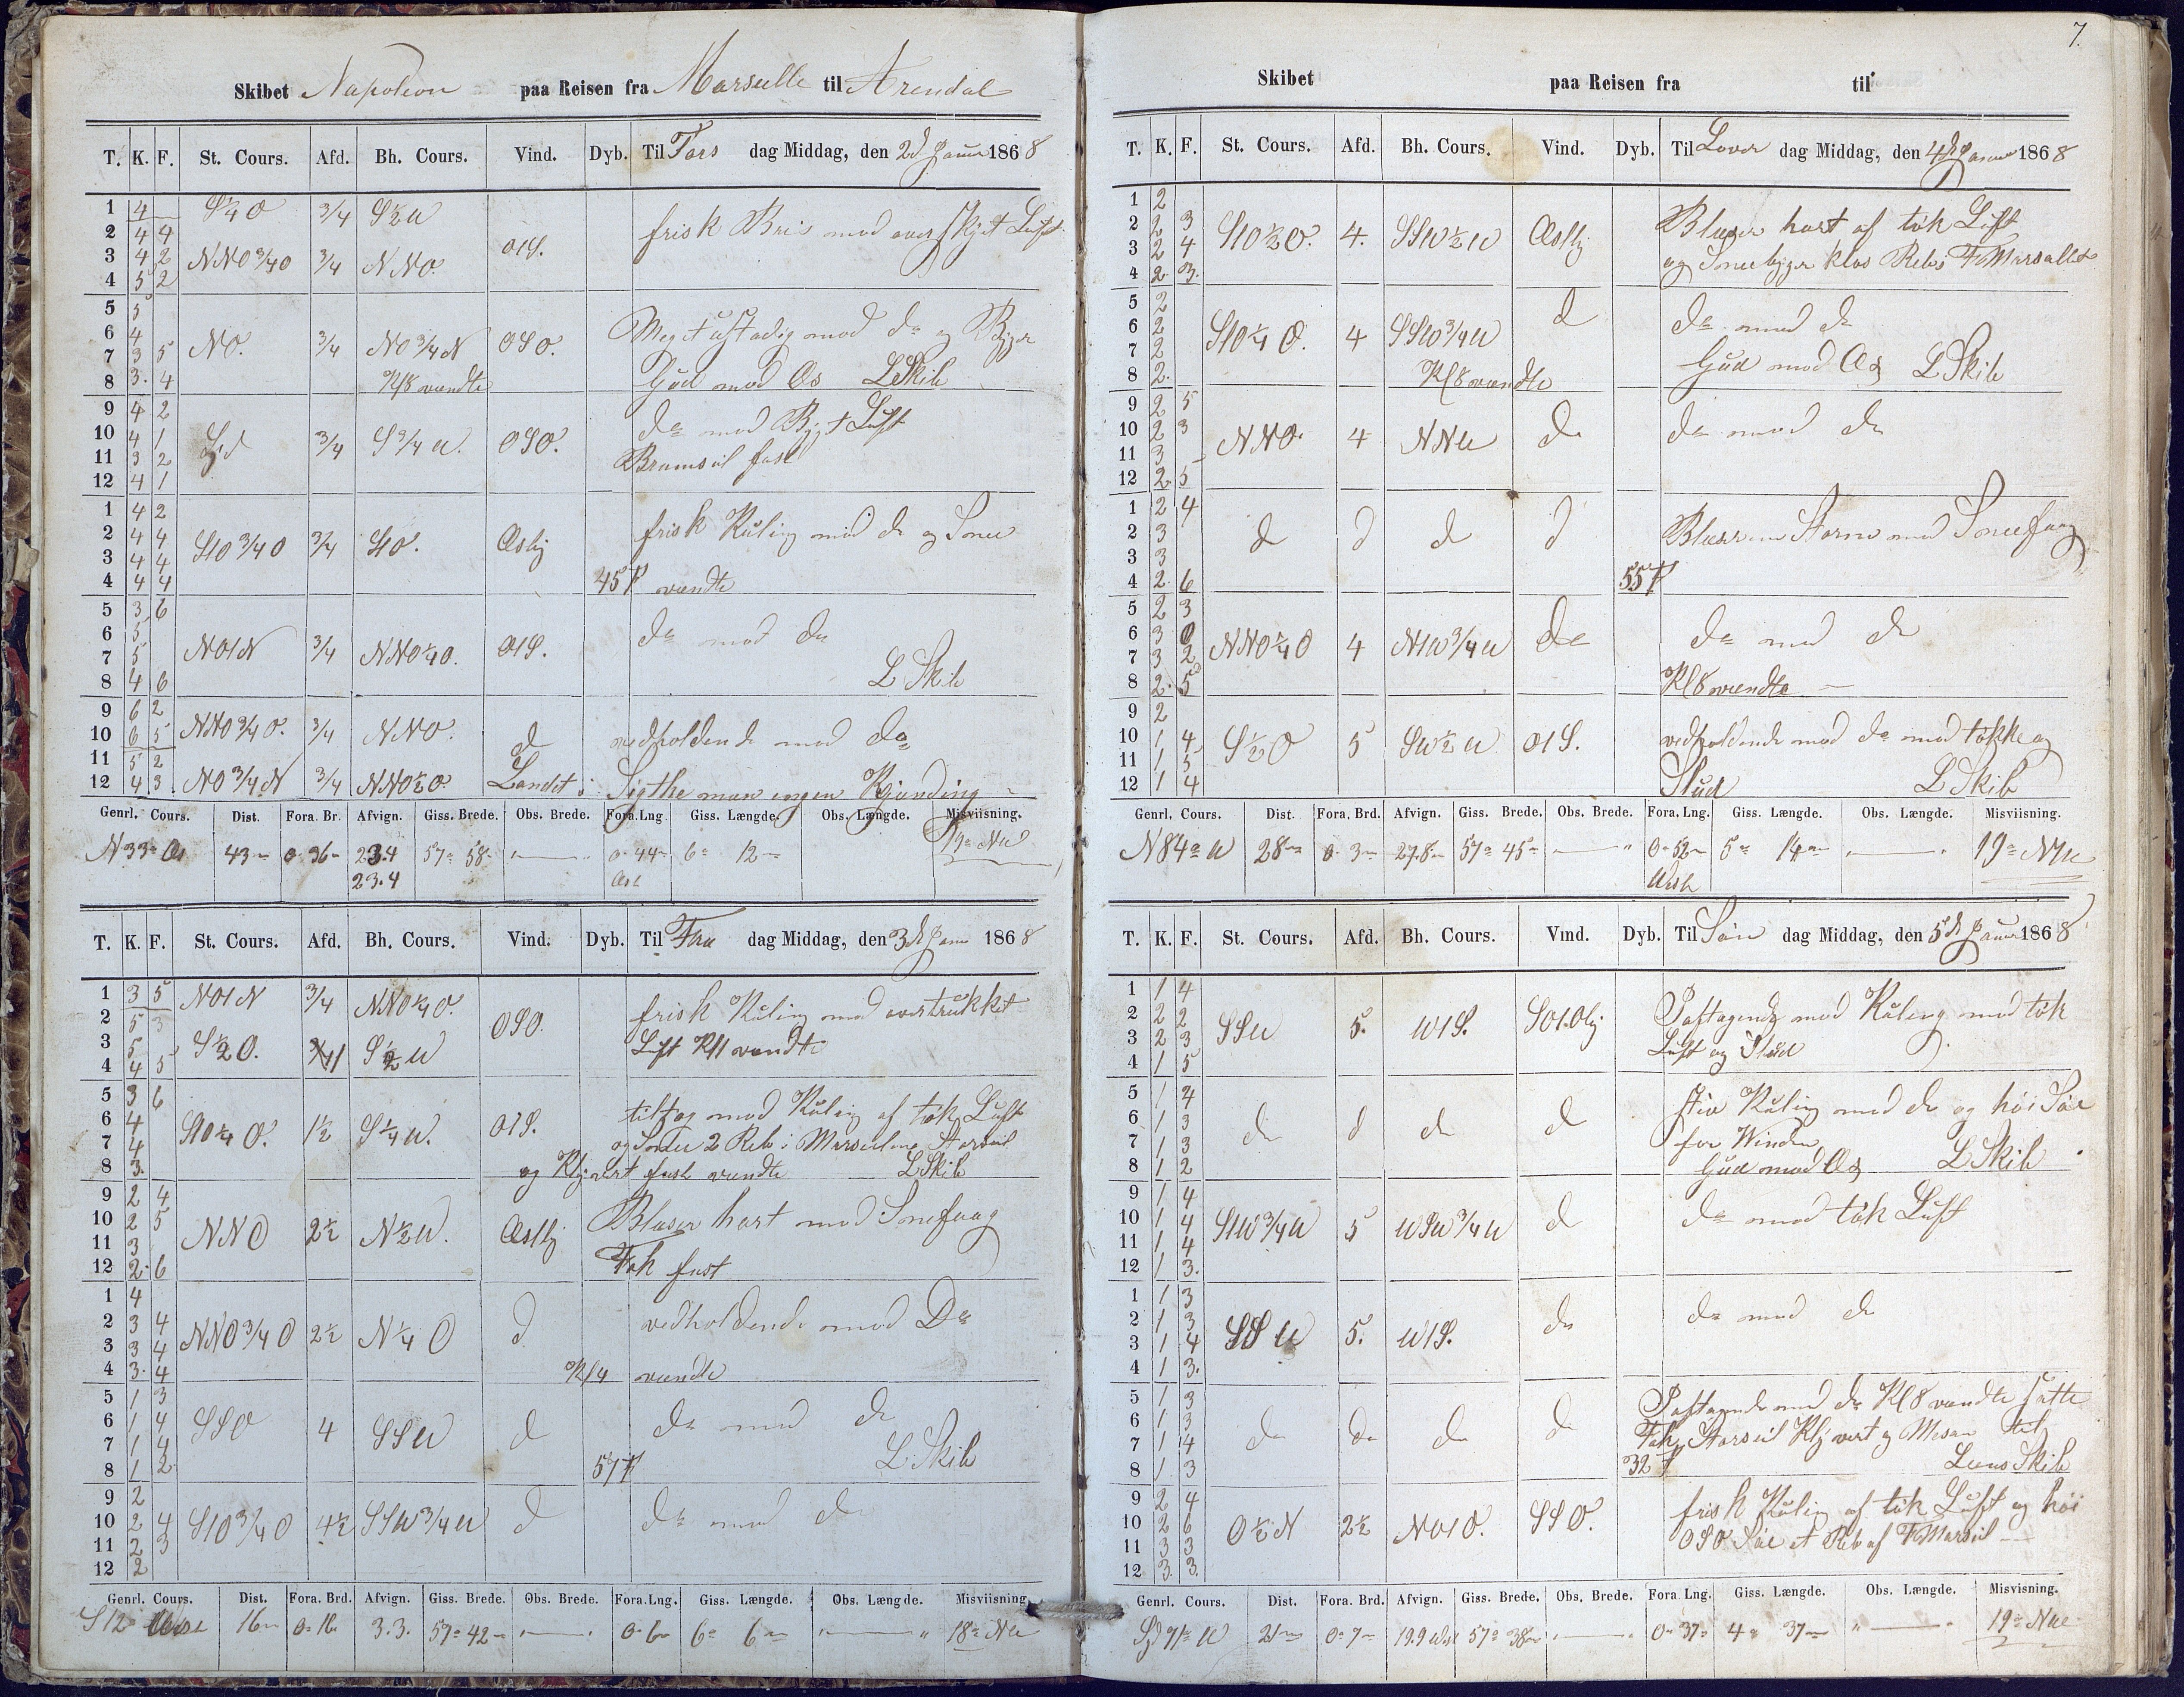 7.
Skibet Napoleon paa Reisen fra Marseille til Arendal
T. K. F. St. Cours. Afd. Bh. Cours. Vind. Dyb. Til Tors dag Middag, den 2d Januar 1868
1 4 S¼O ¾ S½W
2 4 4 frisk Bris med overskyet Luft
3 4 2 NNO¾O ¾ NNO O1S.
4 5 2
5 5
6 4 Meget ustadig med do og Byger
7 3 5 NO. ¾ NO¾N OSO.
8 3. 4 Kl 8 vendte Gud med Os LSkib
9 4 2
10 4 1 Syd ¾ S¾W. OSO. do med Byget Luft
11 3 2 Bramseil fast
12 4 1
1 4 2
2 4 4 frisk Kuling med do og Snee
3 4 4 S1O¾O ¾ S1O. Ostlig
4 4 4 45 f vendte
5 3 6
6 5 do med do
7 5 NO1N ¾ NNO¼O. O1S.
8 4 6 L Skib
9 6 2
10 6 5 NNO¾O. ¾ NNO. d vedholdende med do
11 5 2
12 4 3 NO¾N ¾ NNO½O. Landet i Sigthe man ingen Kjending
Genrl. Cours. Dist. Fora. Br. Afvign. Giss. Brede. Obs. Brede. Fora.Lng. Giss. Længde. Obs. Længde. Misviisning.
N 33° O 43 0° 36 23.4 57° 58 0° 44 6° 12 19° NW
23.4 Ost
T. K. F. St. Cours. Afd. Bh. Cours. Vind. Dyb. Til Fre dag Middag, den 3d Januar 1868
1 3 5 NO1N ¾ NNO¼O.
2 5 3 OSO. frisk Kuling med overtrukket
3 5 S½O. S½W Luft Kl 1 vendte
4 4 5
5 3 6
6 4 S1O¼O. 1½ S¼W. O1S. tiltog med Kuling af tok Luft
7 4 og Snee 2 Reb i Merseilene Storseil
8 3. og Klyvert fast vendte LSkib
9 2 4
10 2 5 NNO 2½ N½W. Ostlig Blæser hart med Snefaag
11 3
12 2. 6 Fok fast
1 4
2 3 4 NNO¾O 2½ N¼O d vedholdende med Do
3 3 4
4 3. 4 Kl 4 vendte
5 1 3
6 1 4 SSO 4 SSW d do med do
7 1 4 L Skib
8 1 2 57 f
9 2
10 2 4 S1O¾O 4½ SSW¾W d do med do
11 2 3
12 2
Genrl. Cours. Dist. Fora. Brd. Afvign. Giss. Brede. Obs. Brede. Fora.Lng. Giss. Længde. Obs. Længde. Misviisning.
S 12 16 0° 16 3.3. 57° 42 0° 6 6° 6 18° NW
Skibet paa Reisen fra til
T. K. F. St. Cours. Afd. Bh. Cours. Vind. Dyb. Til Løver dag Middag, den 4d Januar 1868
1 2
2 2 3 Blæser hart af tok Luft
3 2 4 S1O½O. 4. SSW½W Ostlig
4 2 3 og Sneebyger klos Rebs F Marsallet
5 2
6 2 S1O¼O. 4 SSW¾W d do med do
7 2 Gud med Os LSkib
8 2. Kl 8 vendte
9 2 5
10 2 3 NNO 4 NNW do do med do
11 3
12 2 5
1 2 4
2 3 d d d d Blæser en Storm med Sneefaag
3 3
4 2 6 55 f
5 2 3
6 3 0 NNO¼O 4 N1W¾W do do med do
7 3 2
8 2. 5 Kl 8 vendte
9 2
10 1 4 S½O 5 SW½W O1S. vedholdende med do med tokke og
11 1 5
12 1 4 Slud L Skib
Genrl. Cours. Dist. Fora. Brd. Afvign. Giss. Brede. Obs. Brede. Fora. Lng. Giss. Længde. Obs. Længde. Misviisning.
N 84° W 28 0. 3 27.8 57° 45 0° 52 5° 14 19° NW
West
T. K. F. St. Cours. Afd. Bh. Cours. Vind. Dyb. Til Søn dag Middag, den 5d Januar 1868
1 1 4
2 2 2 SSW 5. W1S. SO1.Olg Paftagende med Kuling med tok
3 2 3 Luft og Slud
4 1 5
5 1 4
6 1 3 do d do d stiv Kuling med do og høi Søe
7 1 3 for Vinden
8 1 2 Gud med Os L Skib
9 1 4
10 1 4 S1W¾W 5 WSW¾W d do med tok Luft
11 1 4
12 1 3.
1 1 3
2 1 3 SSW 5. W1S. do do med do
3 1 4
4 1 3.
5 1 3 Paftagende med do Kl 8 vendte satte
6 1 3 do do do do Fok, Storseil Klyvert og Mesan til
7 1 4
8 1 3 32 f Lens Skib
9 2 4
10 2 6 O½N 2½ NO1O. SSO. frisk Kuling af tok Luft og høi
11 3 3 OSO Søe et Reb af F Marseil
12 3. 3.
Genrl. Cours. Dist. Fora. Brd. Afvign. Giss. Brede. Obs. Brede. Fora Lng. Giss. Længde. Obs. Længde. Misvisning.
Syd 71° W 21 0° 7 19.9 West 57° 38 0° 37 4° 37 19° NW